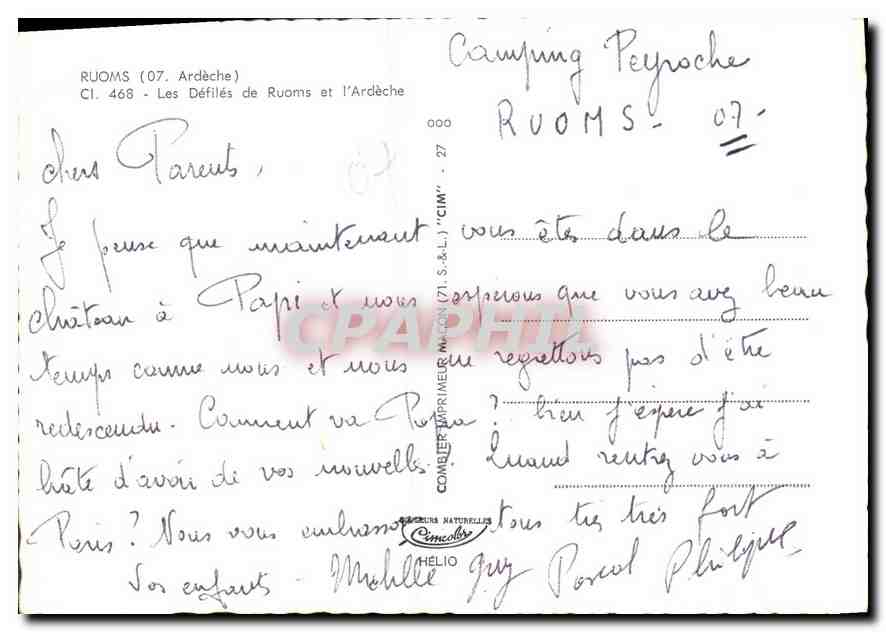 Camping Peyroche
RUOMS - 07-
RUOMS (07. Ardèche)
Cl. 468 - Les Défilés de Ruoms et l'Ardèche
chers Parents,
Je pense que maintenant vous êtes dans le
château à Papi et nous espérons que vous avez beau
temps comme nous et nous ne regrettons pas d'être
redescendu. Comment va Papa? bien j'espère j'ai
hâte d'avoir de vos nouvelles.! Quand rentrez vous à
Paris? Nous vous embrassons tous très très fort
Vos enfants - Guy Pascal Philippe
000
COMBIER IMPRIMEUR MACON (71. S.-&-L.) "CIM" - 27
COULEURS NATURELLES
Cimcolor
HÉLIO
CPAPHIL
07